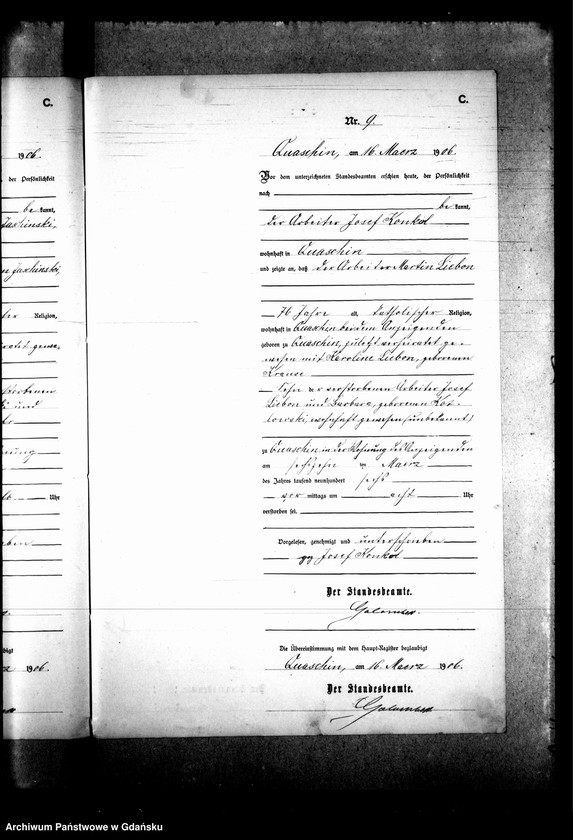 C.
1906.
der Persönlichkeit
be kannt,
Religion,
Uhr
1906.
C.
Nr. 9.
Quaschin, am 16 Maerz 1906.
Vor dem unterzeichneten Standesbeamten erschien heute, der Persönlichkeit
nach
be kannt,
der Arbeiter Josef Konkol
wohnhaft in Quaschin
und zeigte an, daß der Arbeiter Martin Liebon
76 Jahre alt, katholischer Religion,
wohnhaft in Quaschin bei dem Anzeigenden
geboren zu Quaschin, zuletzt verheiratet ge-
wesen mit Karoline Liebon, geborenen
Krause
Sohn der verstorbenen Arbeiter Josef
Liebon und Barbara, geborenen Koz-
lowski, wohnhaft gewesen (unbekannt)
zu Quaschin in der Wohnung des Anzeigenden
am sechszehn ten Maerz
des Jahres tausend neunhundert sechs
vor mittags um acht Uhr
verstorben sei.
Vorgelesen, genehmigt und unterschrieben
gez Josef Konkol
Der Standesbeamte.
Die Übereinstimmung mit dem Haupt-Register beglaubigt
Quaschin, am 16. Maerz 1906.
Der Standesbeamte.
Archiwum Państwowe w Gdańsku